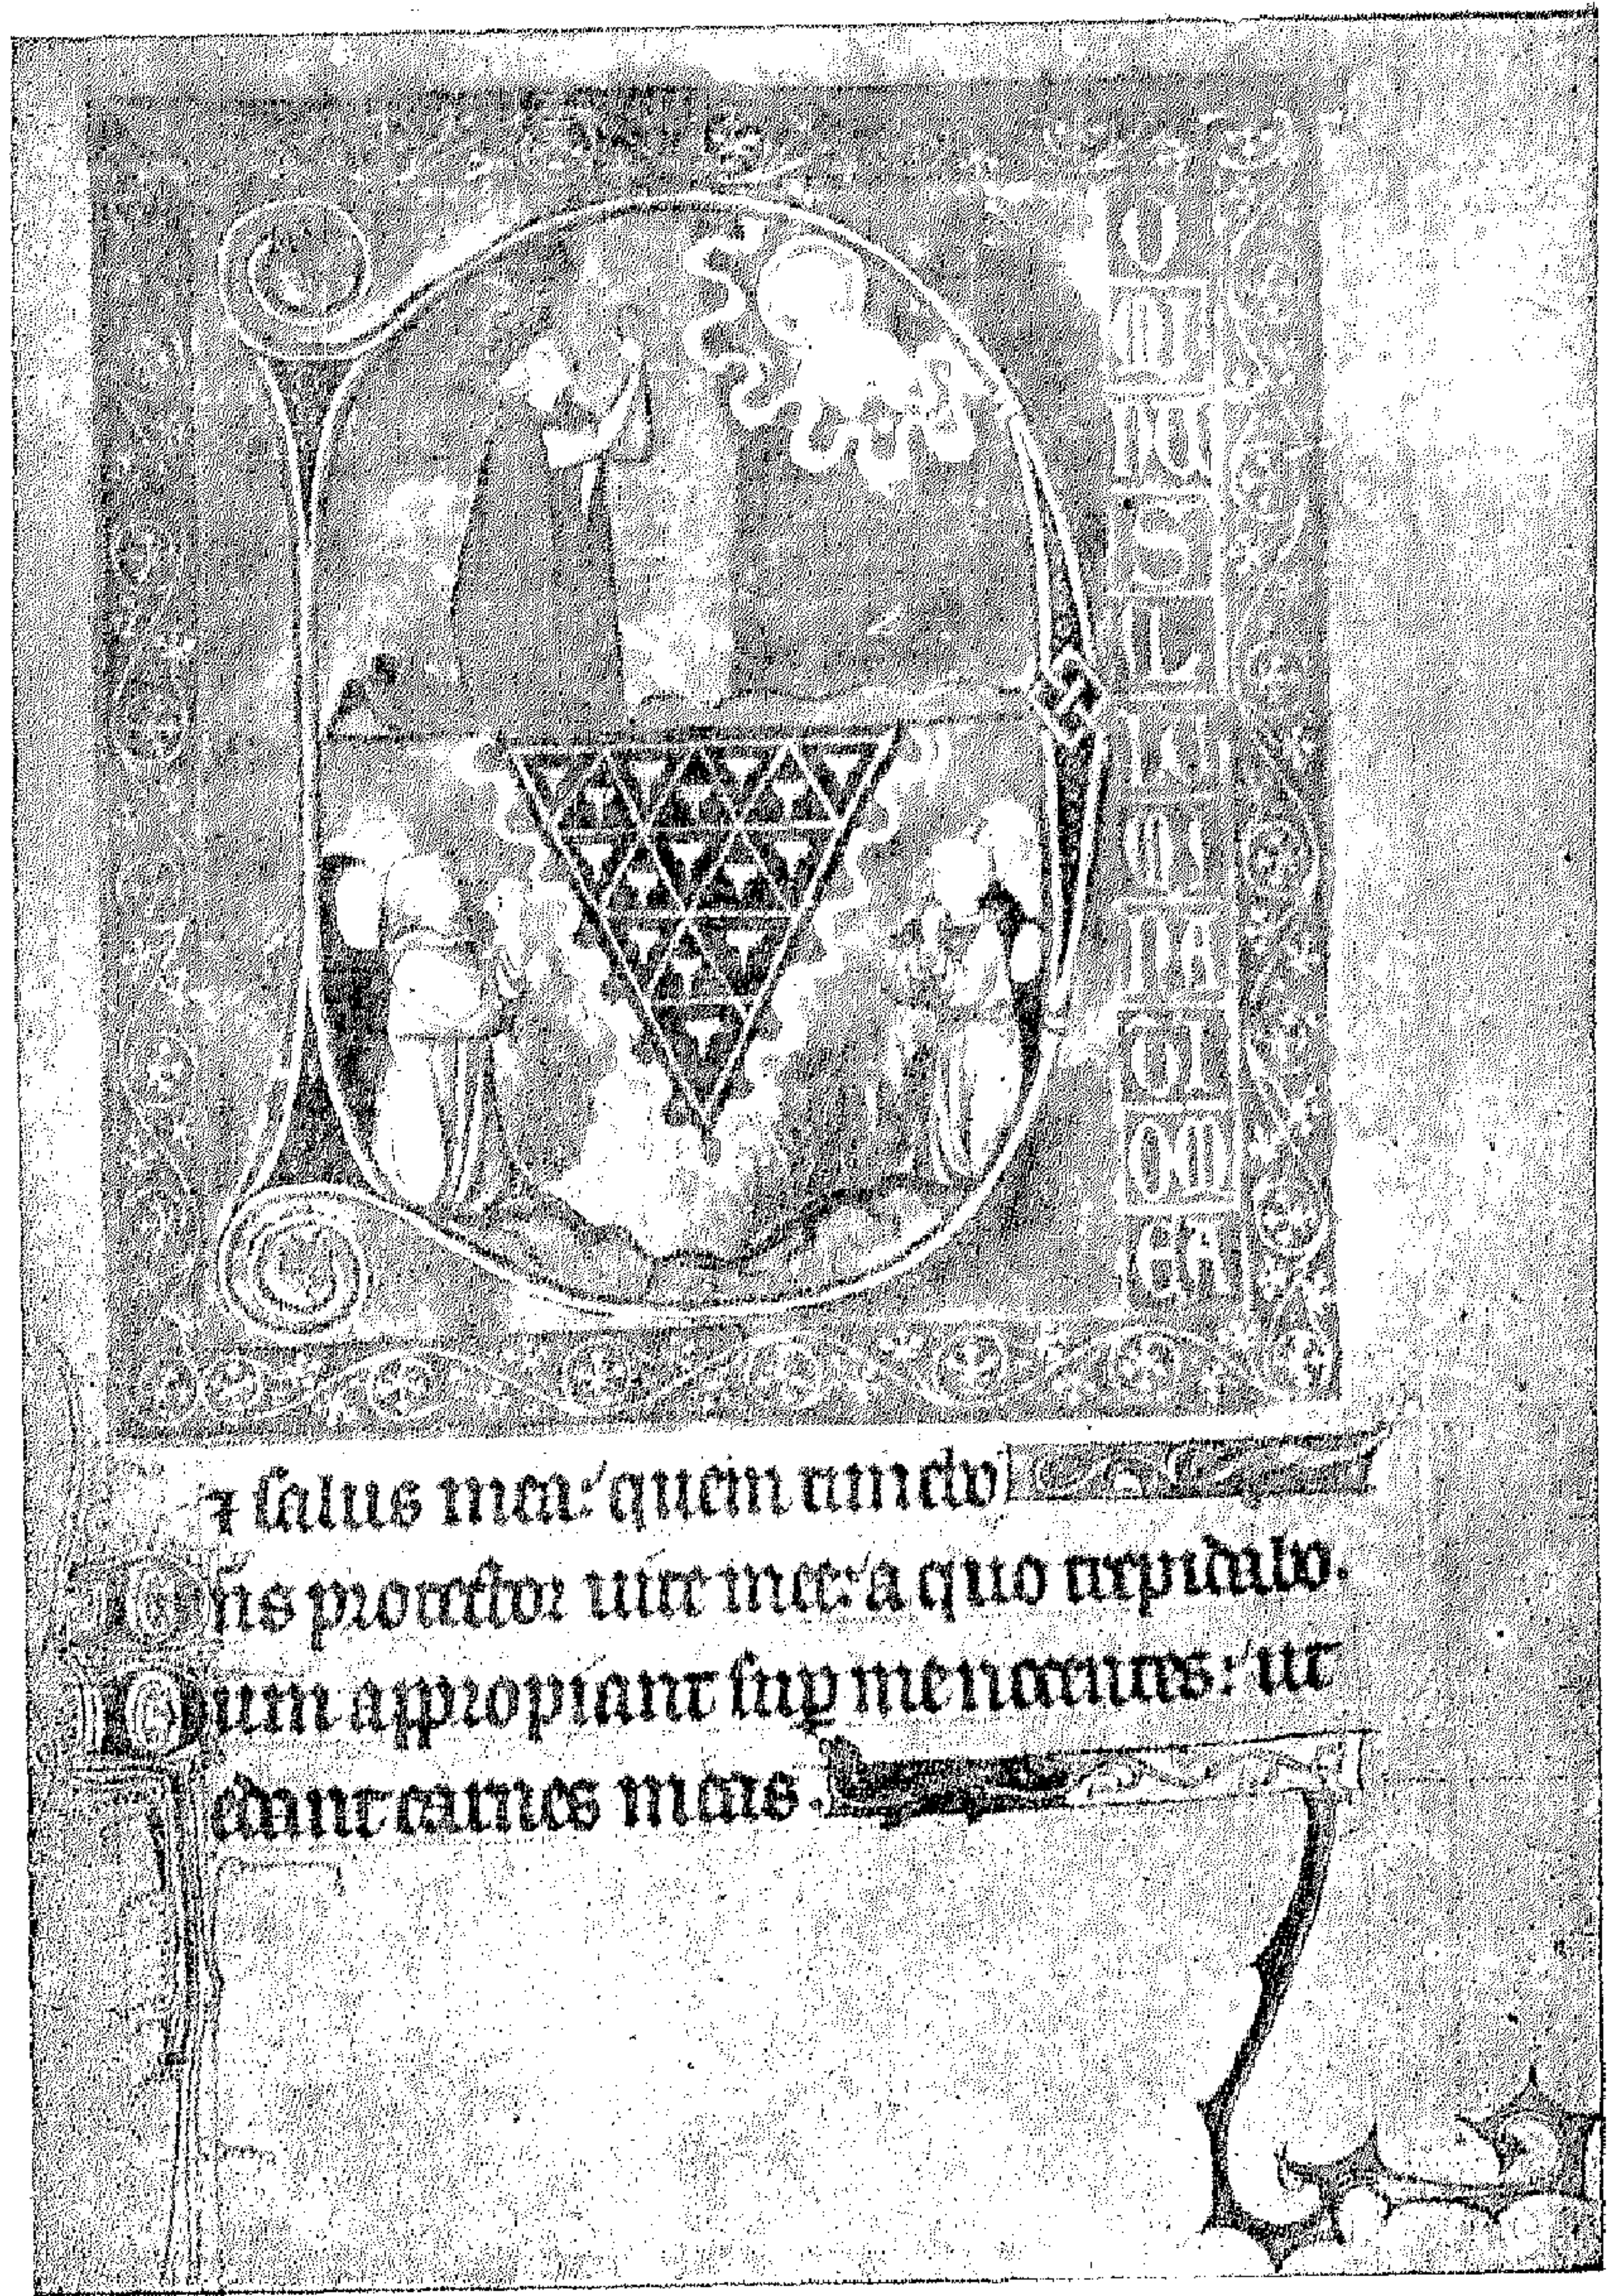 D
O
MI
NU
S
IL
LU
MI
NA
TI
OM
EA
⁊ salus mea: quem timebo
Dn̄s protector uite mee: a quo trepidabo.
Dum appropiant sup̱ me nocentes: ut
edant carnes meas.